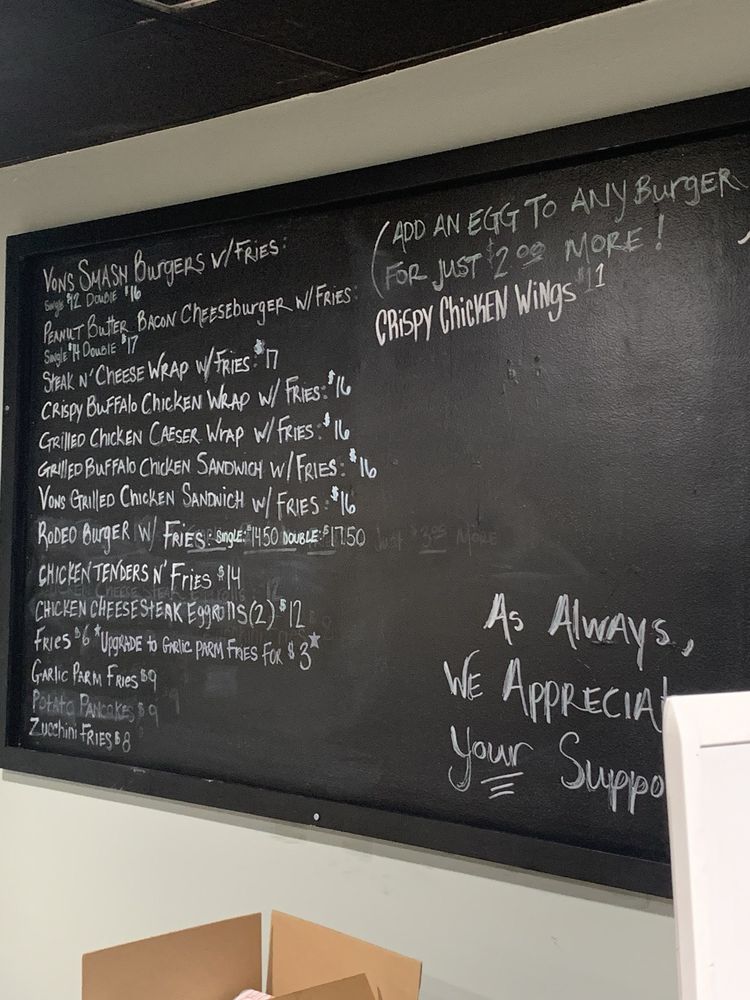 Vons Smash Burgers w/Fries:
Single $12 Double $16
Peanut Butter Bacon Cheeseburger w/Fries:
Single $14 Double $17
Steak n' Cheese Wrap w/Fries: $17
Crispy Buffalo Chicken Wrap w/ Fries: $16
Grilled Chicken Caeser Wrap w/ Fries: $16
Grilled Buffalo Chicken Sandwich w/Fries: $16
Vons Grilled Chicken Sandwich w/ Fries: $16
Rodeo Burger w/ Fries: Single: $14.50 Double: $17.50
Chicken Tenders n' Fries $14
Chicken Cheesesteak Eggrolls (2) $12
Fries $6 *Upgrade to Garlic Parm Fries for $3*
Garlic Parm Fries $9
Potato Pancakes $9
Zucchini Fries $8
(Add an Egg to any Burger
for just $2.00 more!
Crispy Chicken Wings $11
As Always,
We Apprecia
Your Suppo